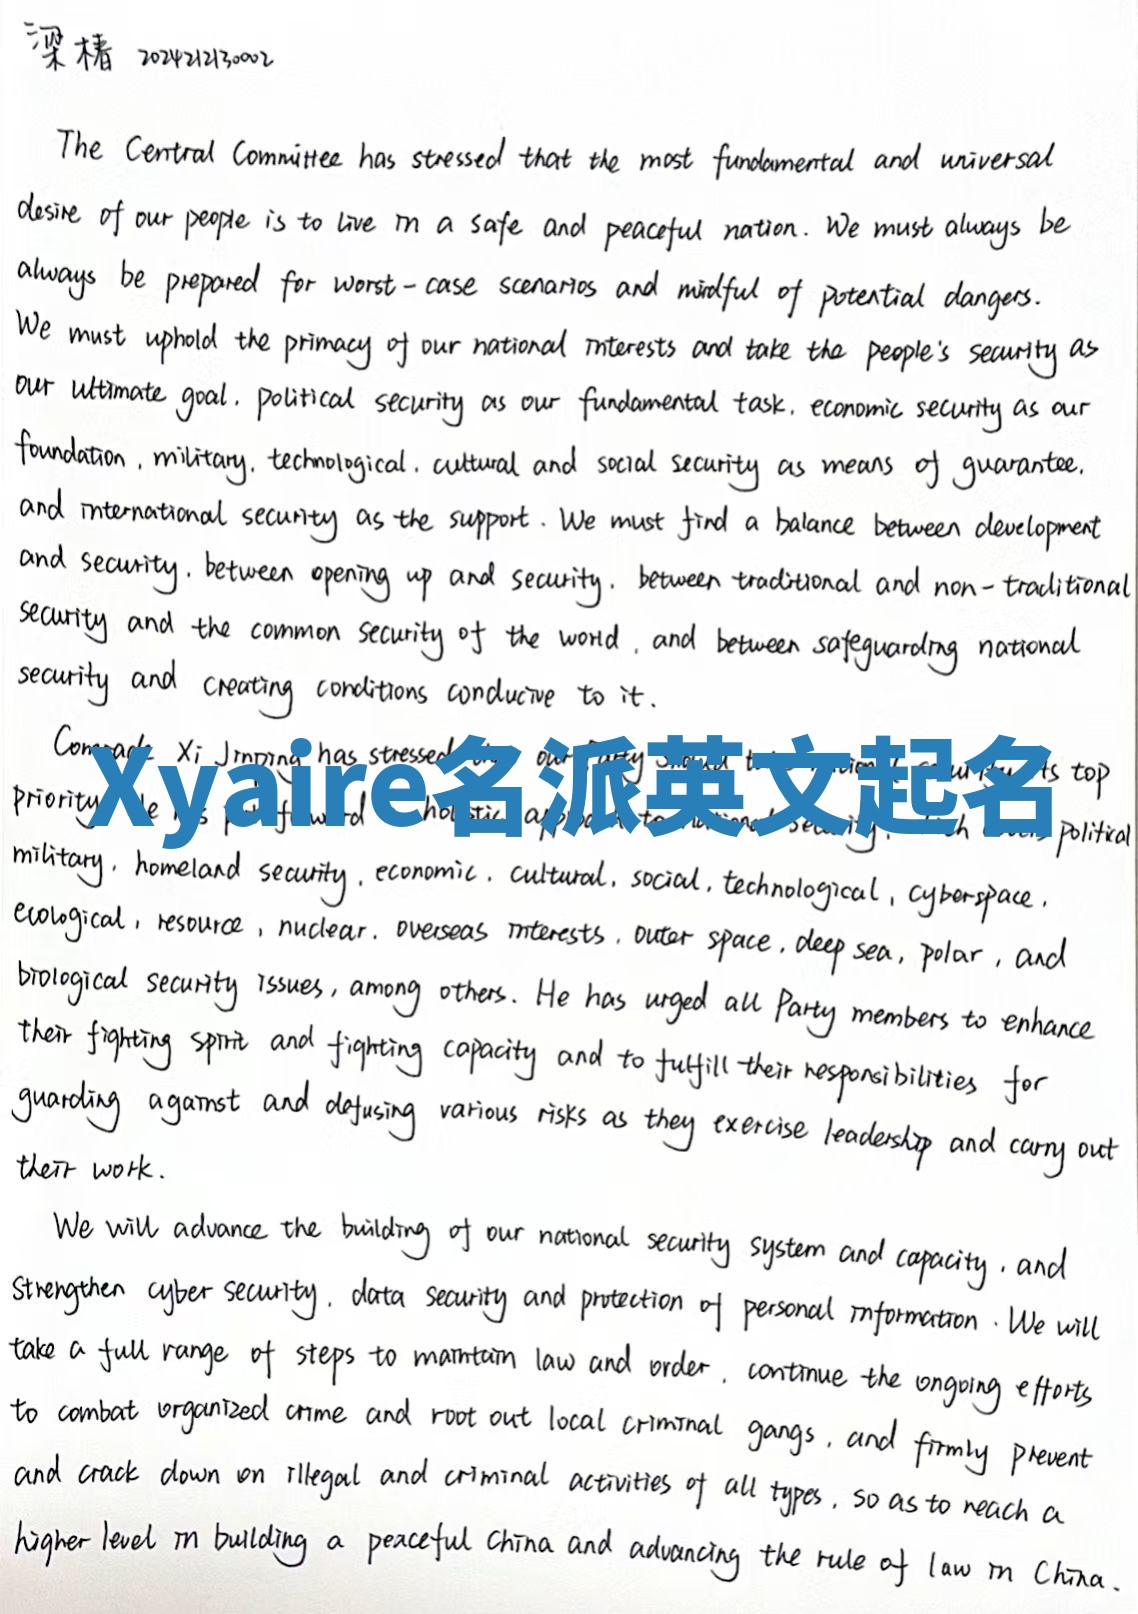 梁椿 2024212130002
The Central Committee has stressed that the most fundamental and universal
desire of our people is to live in a safe and peaceful nation. We must always be
always be prepared for worst-case scenarios and mindful of potential dangers.
We must uphold the primacy of our national interests and take the people's security as
our ultimate goal, political security as our fundamental task, economic security as our
foundation, military, technological, cultural and social security as means of guarantee,
and international security as the support. We must find a balance between development
and security, between opening up and security, between traditional and non-traditional
security and the common security of the world, and between safeguarding national
security and creating conditions conducive to it.
Comrade Xi Jinping has stressed our Party should security its top
priority. put forward holistic approach to national security, which covers political
Xyaire名派英文起名
military, homeland security, economic, cultural, social, technological, cyberspace,
ecological, resource, nuclear, overseas interests, outer space, deep sea, polar, and
biological security issues, among others. He has urged all Party members to enhance
their fighting spirit and fighting capacity and to fulfill their responsibilities for
guarding against and defusing various risks as they exercise leadership and carry out
their work.
We will advance the building of our national security system and capacity, and
strengthen cyber security, data security and protection of personal information. We will
take a full range of steps to maintain law and order, continue the ongoing efforts
to combat organized crime and root out local criminal gangs, and firmly prevent
and crack down on illegal and criminal activities of all types, so as to reach a
higher level in building a peaceful China and advancing the rule of law in China.